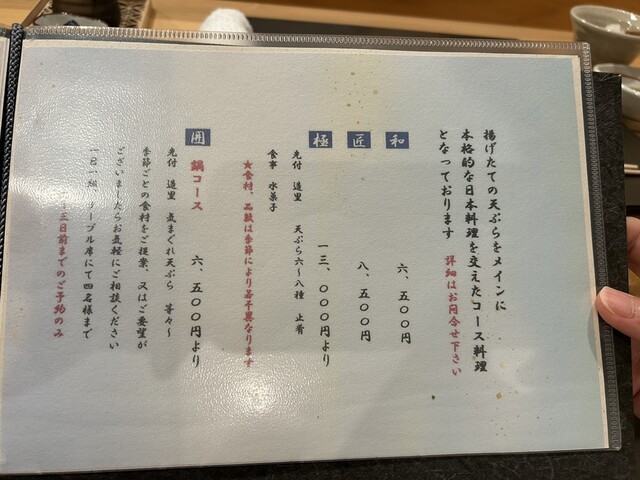 揚げたての天ぷらをメインに
本格的な日本料理を交えたコース料理
となっております 詳細はお問合せ下さい
和 六、五〇〇円
匠 八、五〇〇円
極 一三、〇〇〇円より
先付 造里 天ぷら六〜八種 止肴
食事 水菓子
★食材、品数は季節により若干異なります
囲 鍋コース 六、五〇〇円より
先付 造里 気まぐれ天ぷら 等々〜
季節ごとの食材をご提案、又はご要望が
ございましたらお気軽にご相談ください
一日一組 テーブル席にて四名様まで
三日前までのご予約のみ